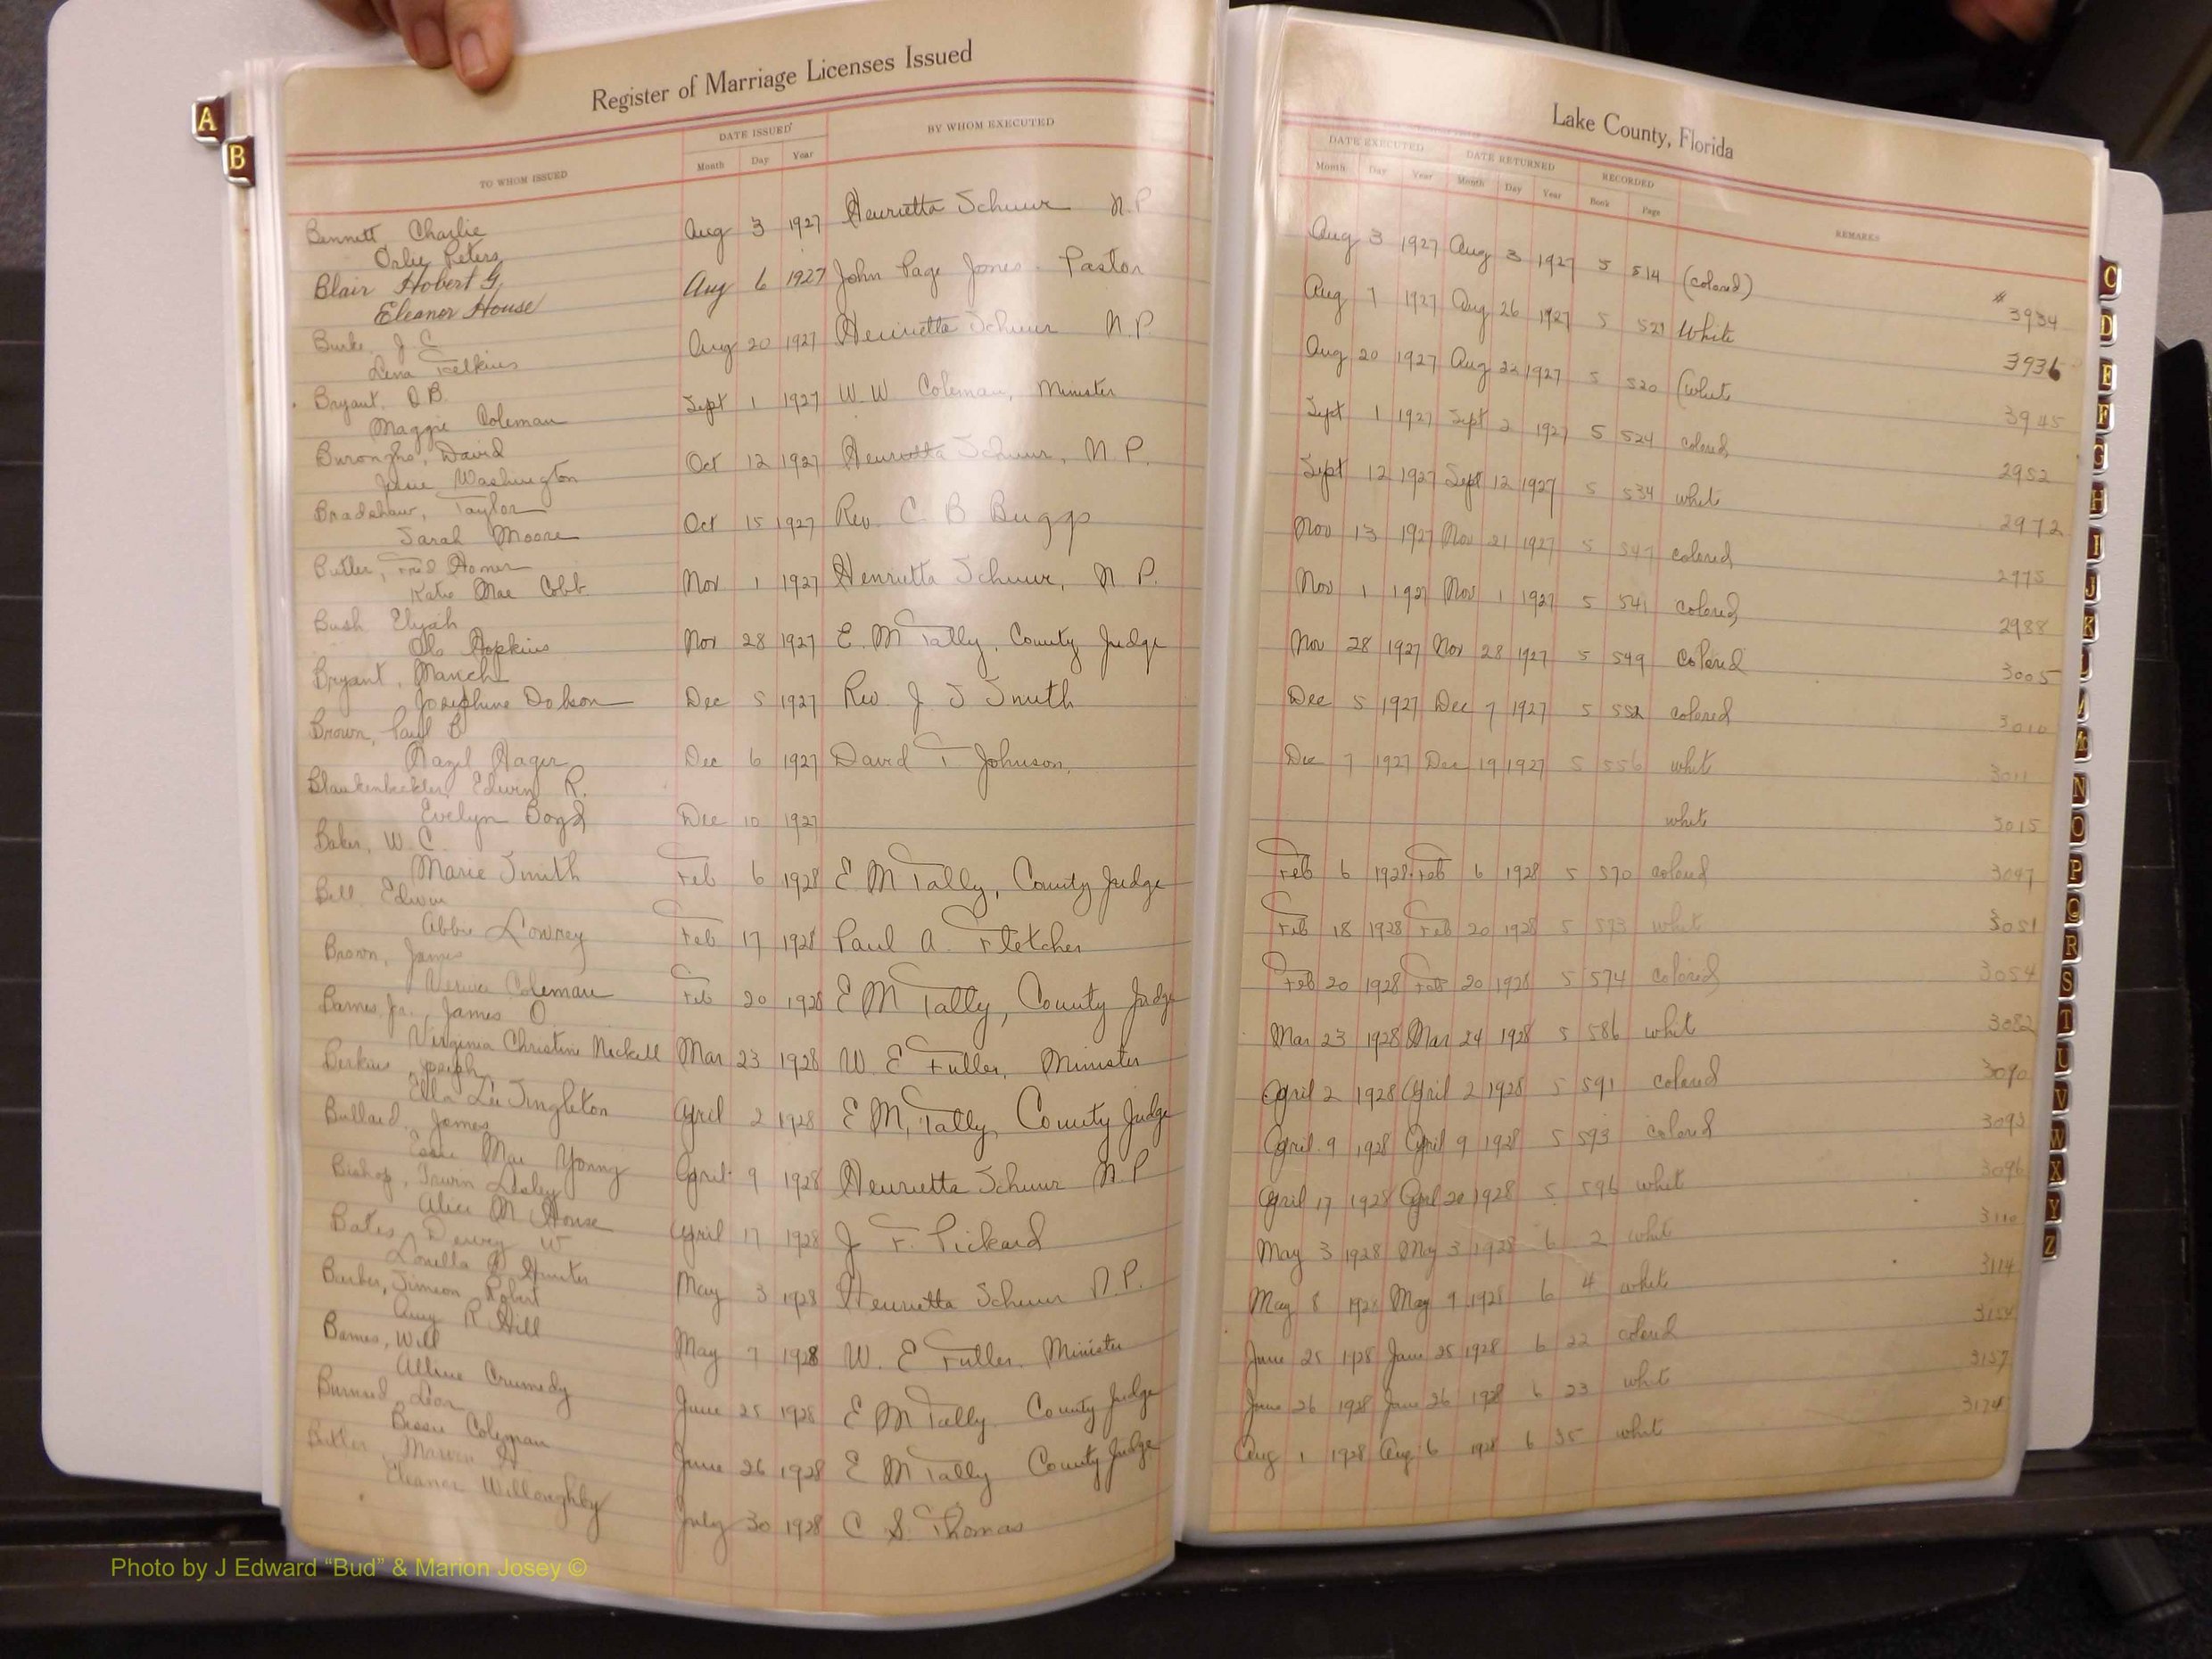 Register of Marriage Licenses Issued
TO WHOM ISSUED
DATE ISSUED
Month Day Year
BY WHOM EXECUTED
Bennett Charlie
Orlie Peters
Aug 3 1927 Henrietta Schuur N.P
Blair Hobert G.
Eleanor House
Aug 6 1927 John Page Jones. Pastor
Burke, J. C.
Lena
Aug 20 1927 Henrietta Schuur N.P.
Bryant, O B.
Maggie Coleman
Sept 1 1927 W. W. Coleman, Minister
Buroughs, David
Washington
Oct 12 1927 Henrietta Schuur, N. P.
Bradshaw, Taylor
Sarah Moore
Oct 15 1927 Rev. C. B Buggs
Butler, Fred Homer
Katie Mae Cobb.
Nov 1 1927 Henrietta Schuur, N. P.
Bush Elijah
Ola Hopkins
Nov 28 1927 E. M Tally, County Judge
Bryant,
Josephine Dobson
Dec 5 1927 Rev. J. J Smith
Brown, Paul B
Hazel Hager
Dec 6 1927 David T Johnson.
Blankenbeckler, Edwin R.
Evelyn Boyd
Dec 10 1927
Baker, W. C.
Marie Smith
Feb 6 1928 E M Tally, County Judge
Bell Edwin
Abbie Lowrey
Feb 17 1928 Paul A. Fletcher
Brown, James
Coleman
Feb 20 1928 E M Tally, County Judge
Barnes, Jr., James O
Virginia Christine Nickell
Mar 23 1928 W. E Fuller, Minister
Berkins Joseph
Ella Lee Singleton
April 2 1928 E M, Tally, County Judge
Bullard, James
Essie Mae Young
April 9 1928 Henrietta Schuur N.P
Bishop, Irwin Lesley
Alice M House
April 17 1928 J F. Pickard
Bates Dewey W
Louella Hunter
May 3 1928 Henrietta Schuur N.P.
Barber, Simeon Robert
Amy R Hill
May 7 1928 W. E Fuller. Minister
Barnes, Will
Alline Crumedy
June 25 1928 E M Tally. County Judge
Leon
Bessie Coleman
June 26 1928 E M Tally County Judge
Butler
Eleanor Willoughby
July 30 1928 C S. Thomas
Lake County, Florida
DATE EXECUTED DATE RETURNED RECORDED
Month Day Year Month Day Year Book Page REMARKS
Aug 3 1927 Aug 3 1927 5 514 (colored) # 3934
Aug 7 1927 Aug 26 1927 5 521 White 3936
Aug 20 1927 Aug 22 1927 5 520 (white 3945
Sept 1 1927 Sept 2 1927 5 524 colored 2952
Sept 12 1927 Sept 12 1927 5 534 white 2972
Nov 13 1927 Nov 21 1927 5 547 colored 2975
Nov 1 1927 Nov 1 1927 5 541 colored 2988
Nov 28 1927 Nov 28 1927 5 549 Colored 3005
Dec 5 1927 Dec 7 1927 5 552 colored 3010
Dec 7 1927 Dec 19 1927 5 556 white 3011
white 3015
Feb 6 1928 Feb 6 1928 5 570 colored 3047
Feb 18 1928 Feb 20 1928 5 573 white 3051
Feb 20 1928 Feb 20 1928 5 574 colored 3054
Mar 23 1928 Mar 24 1928 5 586 white 3082
April 2 1928 April 2 1928 5 591 colored 3090
April 9 1928 April 9 1928 5 593 colored 3093
April 17 1928 April 20 1928 5 596 white 3096
May 3 1928 May 3 1928 6 2 white 3110
May 8 1928 May 9 1928 6 4 white 3114
June 25 1928 June 25 1928 6 22 colored
June 26 1928 June 26 1928 6 23 white 3157
Aug 1 1928 Aug 6 1928 6 35 white 3174
A
B
C
D
E
F
G
H
I
J
K
M
Mc
N
O
P
Q
R
S
T
U
V
W
X
Y
Z
Photo by J Edward “Bud” & Marion Josey ©